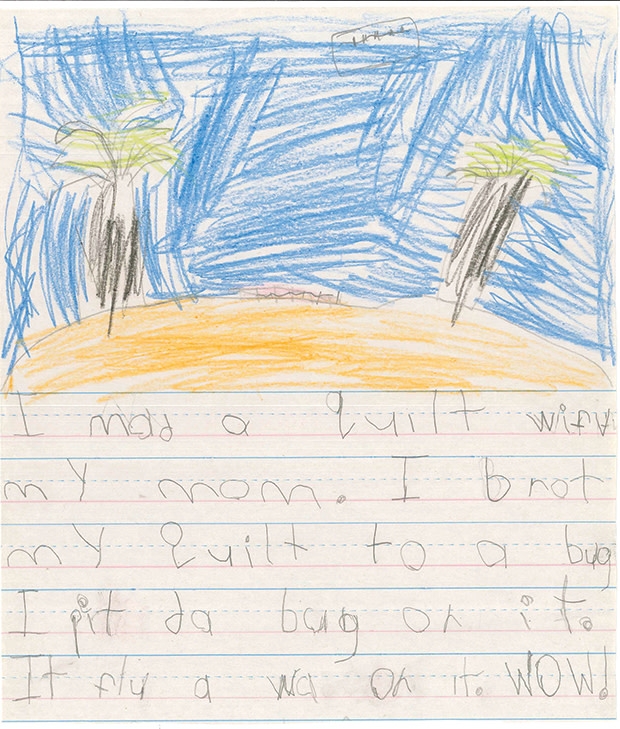 I mad a quilt with
my mom. I brot
my quilt to a bug
I pit da bug on it.
It fly a wa on it. WOW!